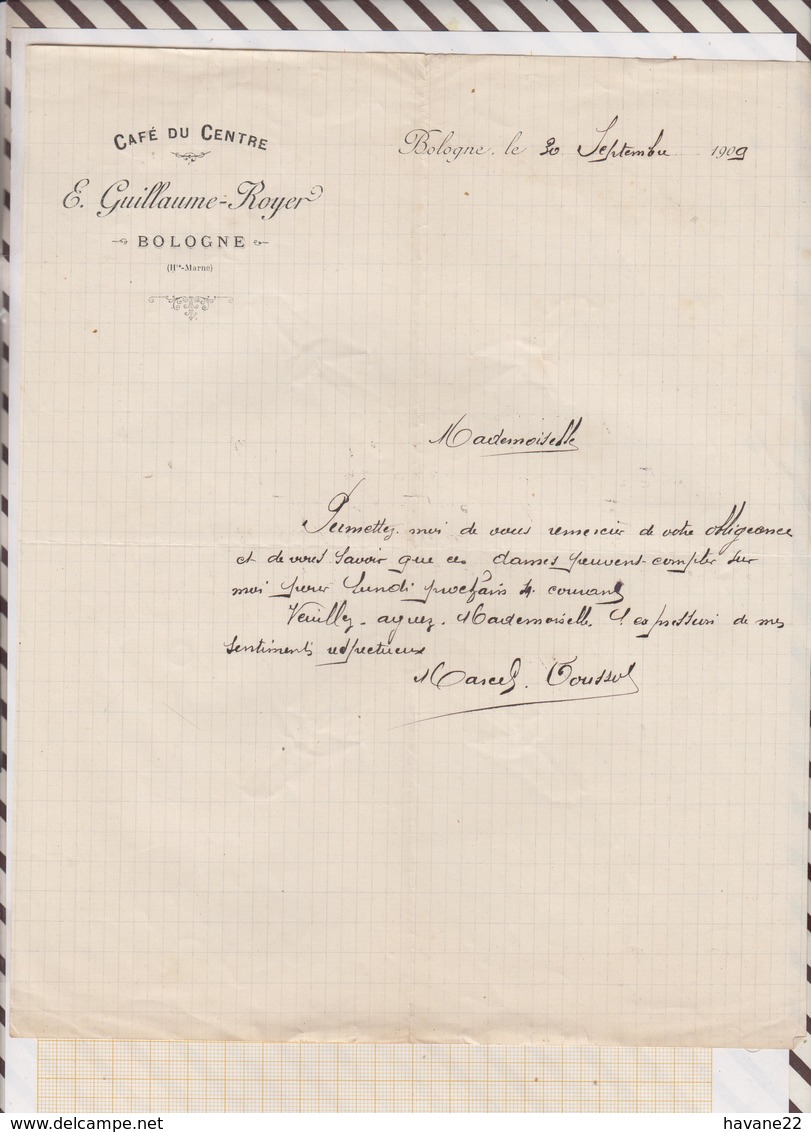 CAFÉ DU CENTRE
E. Guillaume-Royer
BOLOGNE
(Hte-Marne)
Bologne, le 30 Septembre 1909
Mademoiselle
Permettez moi de vous remercier de votre obligeance
et de vous savoir que ces dames peuvent compter sur
moi pour lundi prochain 4 courant
Veuillez agréez Mademoiselle l'expression de mes
sentiments respectueux
Marcel
havane22